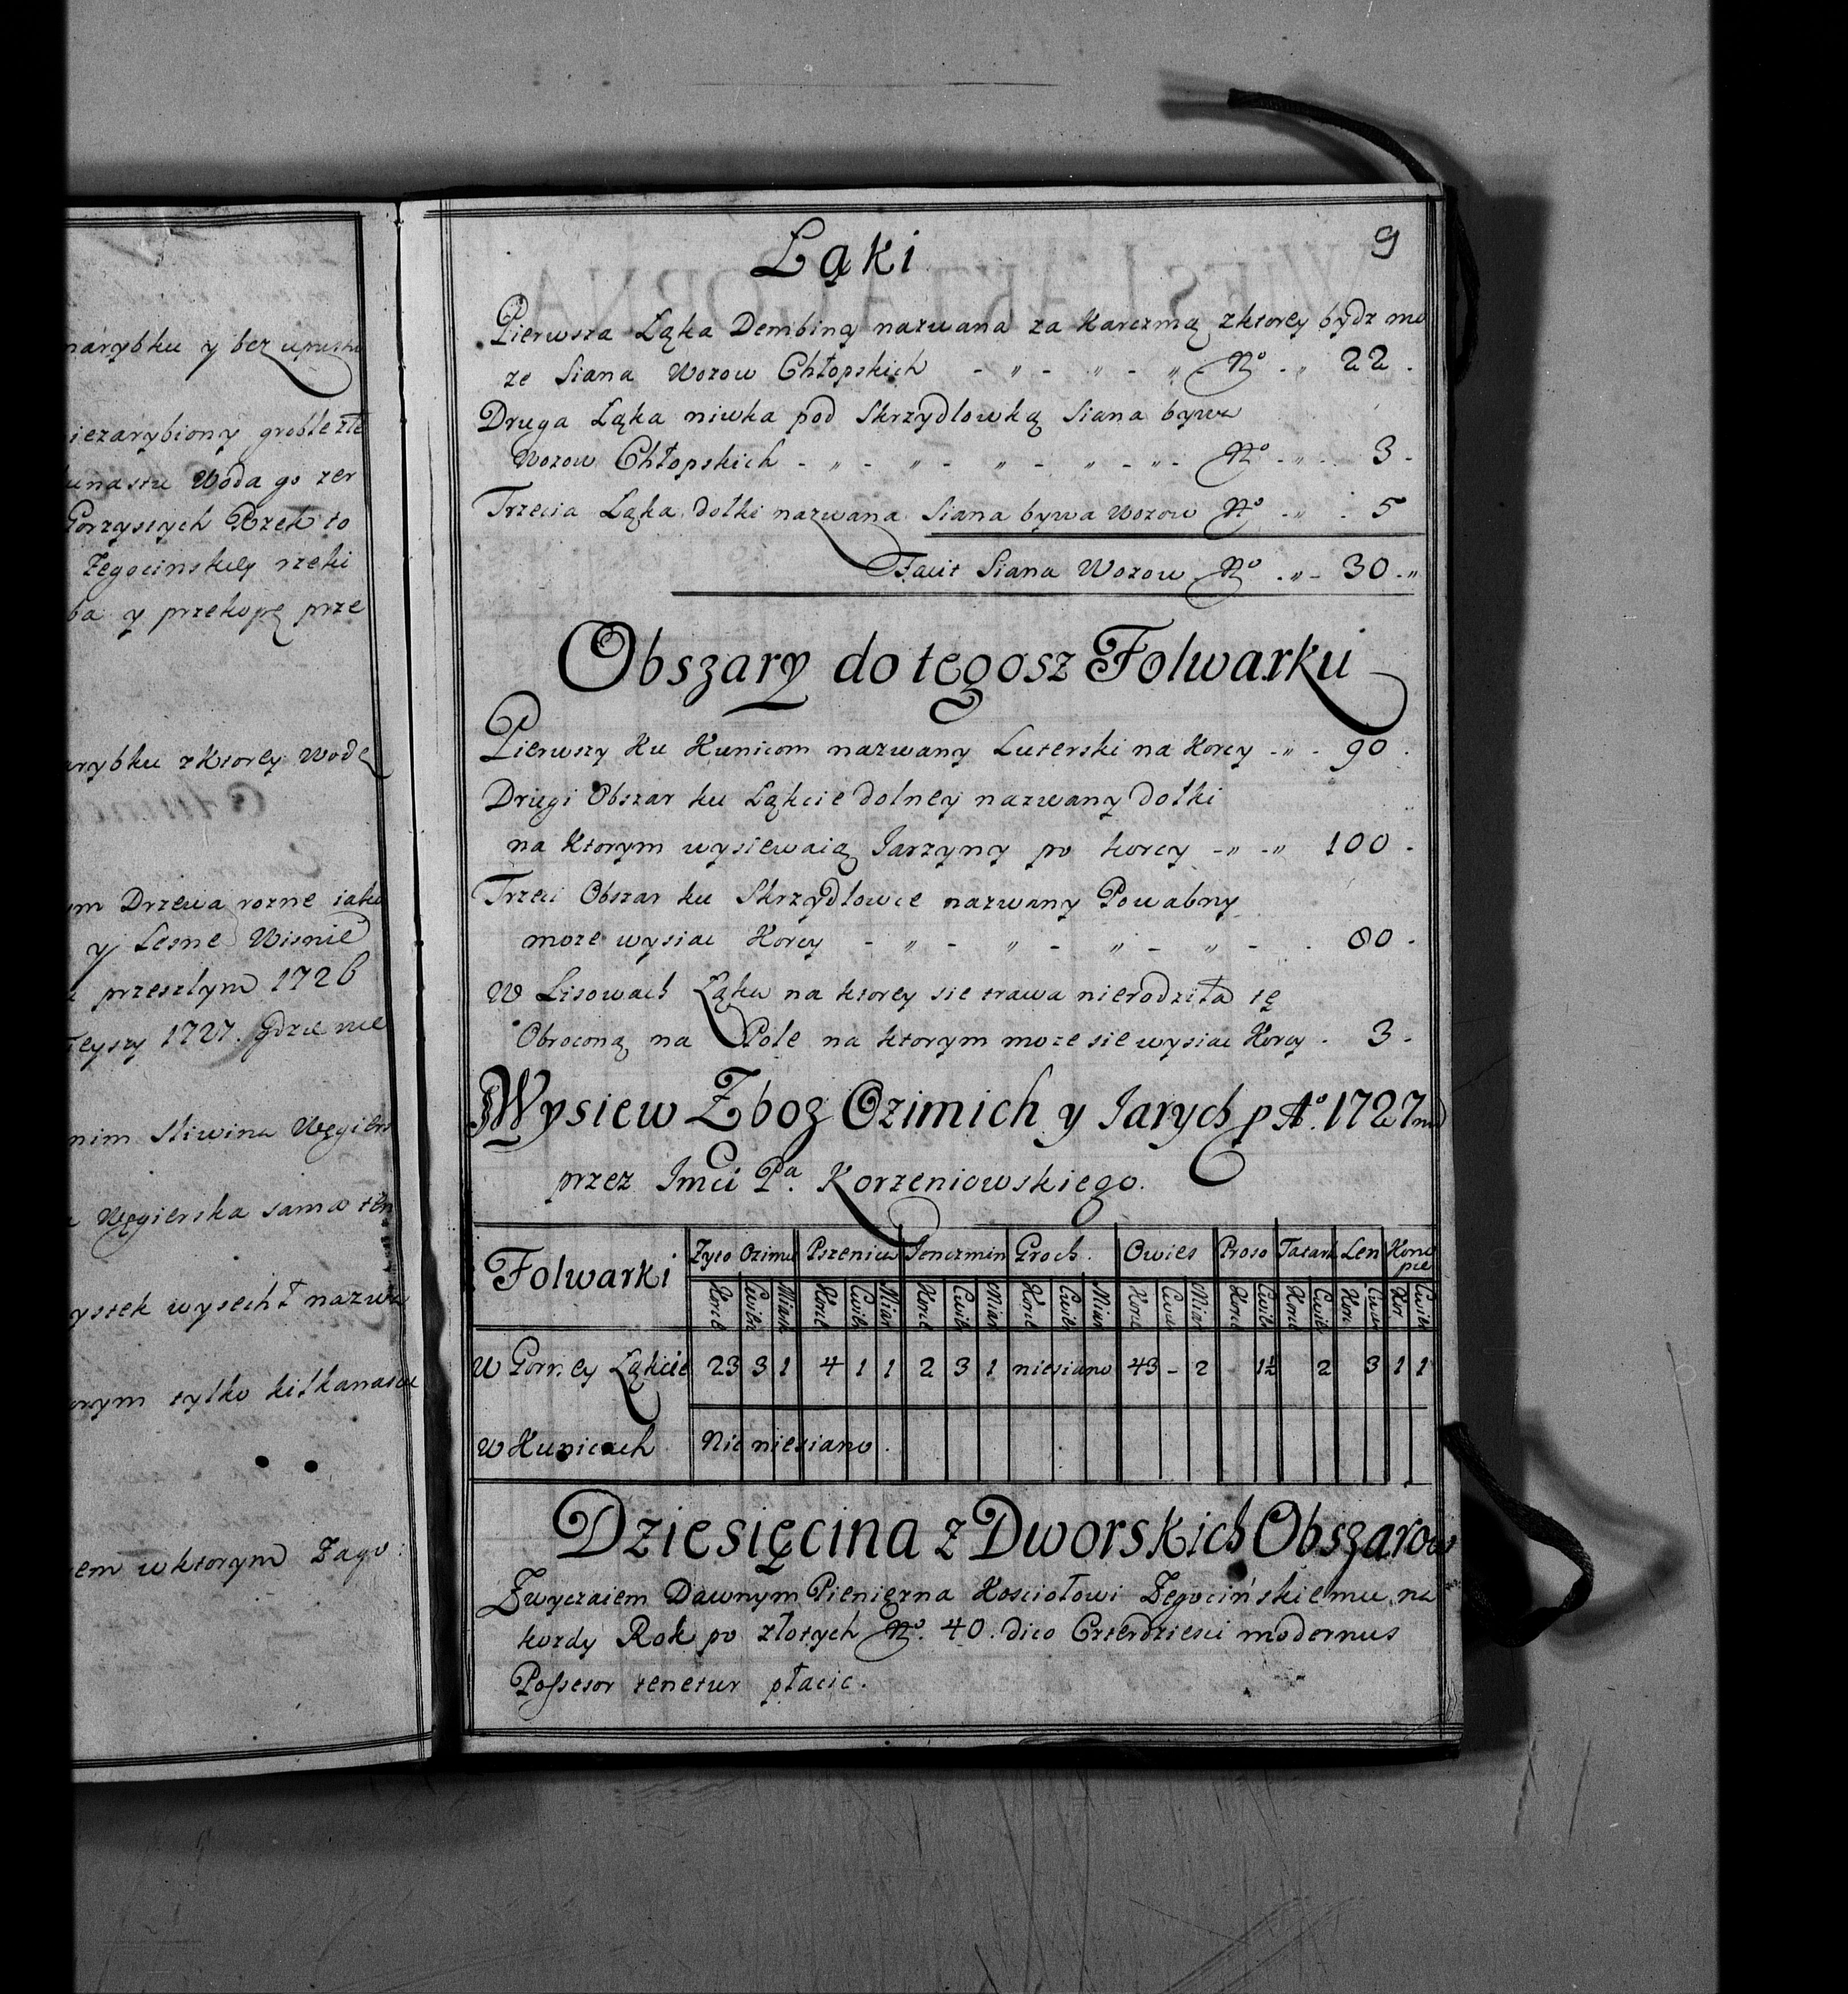 narybku y bez upustu
iezarybiony groble złe
Woda go zer
Gorzystych Rzek to
Zegocinskiey rzeki
ba y przekopę prze
arybku zktorey Wodę
ym Drzewa rozne iako
y Lesne Wisnie
przeszlym 1726
1727. gdzie nie
nim Sliwina Węgiers
Węgierska sama
ystek wysechł nazwa
orym tylko kilkanascie
em wktorym Zago:
9
Ląki
Pierwsza Ląka Dembiną nazwana za Karczmą zktorey bydz mo
ze Siana Wozow Chłopskich - „ - „ - „ No - „ 22 .
Druga Ląka niwka pod Skrzydlowką Siana bywa
Wozow Chłopskich - „ - „ - „ - „ - „ - No - „ - 3 -
Trzecia Ląka dołki nazwana Siana bywa Wozow No - „ . 5
Facit Siana Wozow No . „ - 30 . „
Obszary do tegosz Folwarku
Pierwszy Ku Kunicom nazwany Luterski na Korcy - „ - 90 .
Drugi Obszar ku Ląkcie dolney nazwany dołki
na Ktorym wysiewaią Jarzyny po korcy - „ - „ 100 -
Trzeci Obszar ku Skrzydlowce nazwany Powabny
moze wysiac Korcy - „ - „ - „ - „ - . 80 -
W Lisowach Ląka na ktorey sie trawa nierodziła tę
Obroconą na Pole na ktorym moze sie wysiac Korcy . 3 -
Wysiew Zboz Ozimich y Jarych p Ao. 1727mo
przez Jmci Pa. Korzeniowskiego.
Folwarki Zyto Ozime Pszenica Jenczmin Groch. Owies Proso Tatark Len Kono
pie
Korcē Cwilc Miark Korcē Cwilc Miar Korcē Cwilc Miar Korcē Cwilc Miar Korcē Cwil Miar Korcē Cwilc Korcē Cwilc Korc Cwilc Kor Cwilc
W Gorney Ląkcie 23 3 1 4 1 1 2 3 1 niesiano 43 - 2 - 1½ 2 3 1 1
W Kunicach Nic niesiano .
Dziesięcina z Dworskich Obszarow
Zwyczaiem Dawnym Pieniężna Kosciołowi Zegocińskiemu na
kozdy Rok po złotych No. 40. dico Czterdziesci modernus
Possesor tenetur płacic.